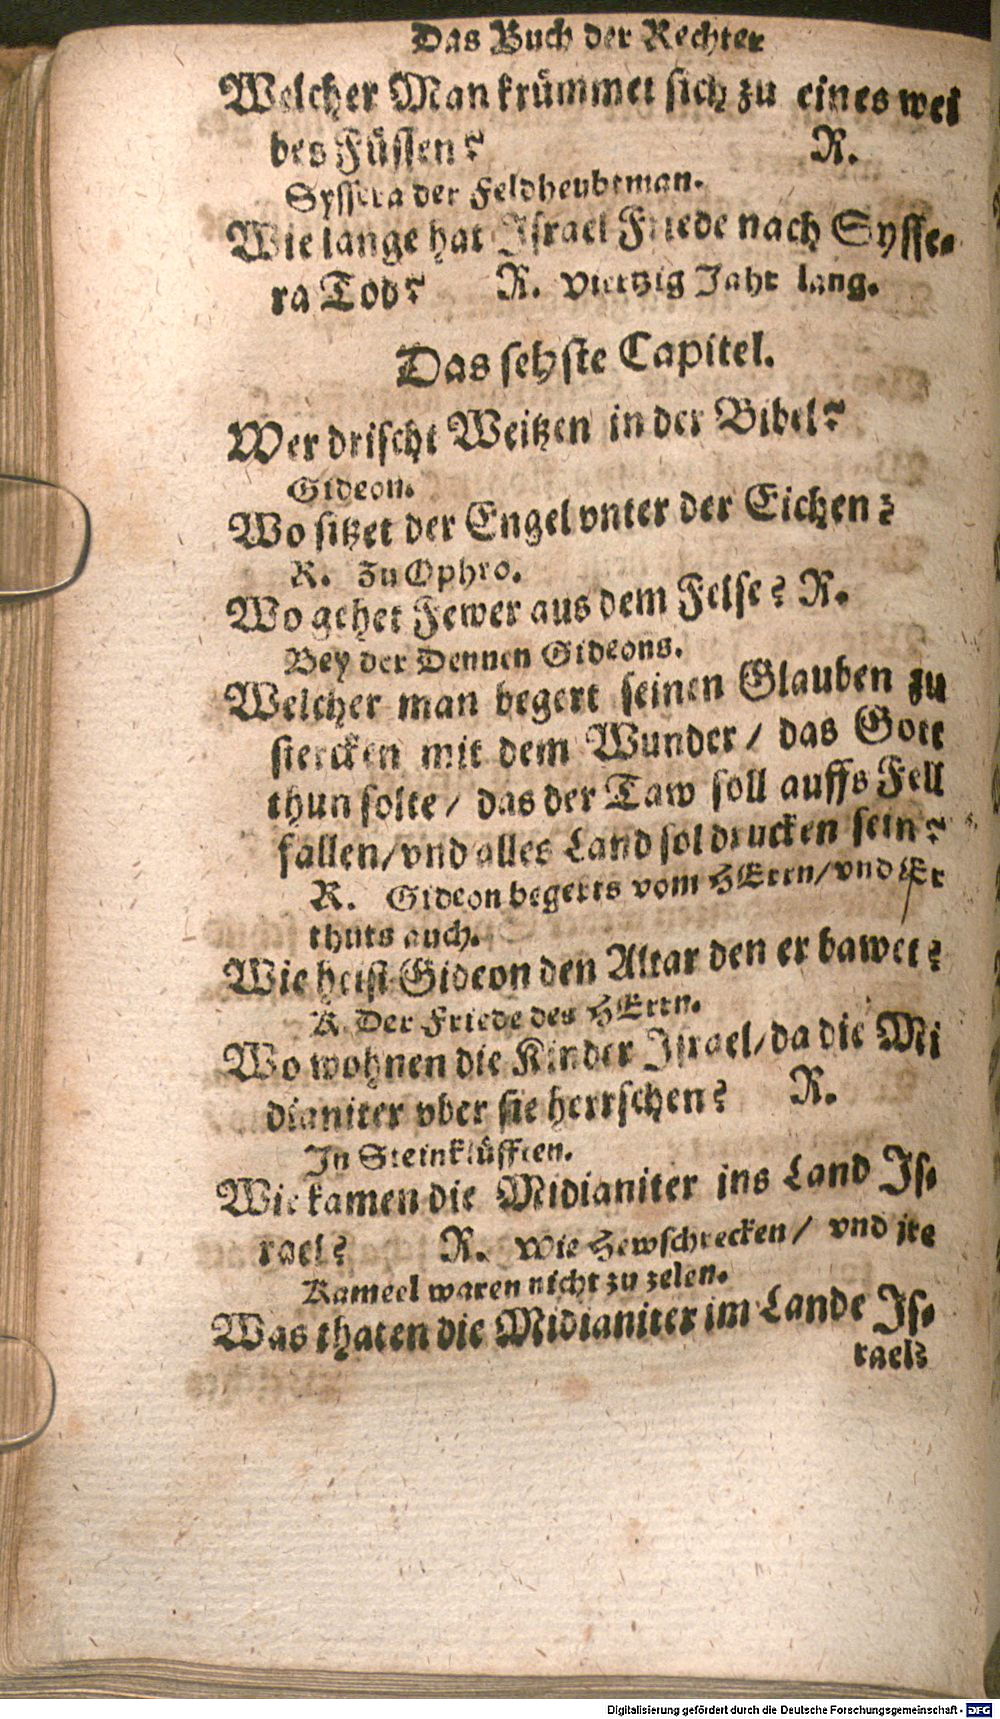 Das Buch der Rechter
Welcher Man krümmet sich zu eines wei
bes Füssen? R.
Syssera der Feldheubtman.
Wie lange hat Israel Friede nach Sysse-
ra Tod? R. Viertzig Jahr lang.
Das sehste Capitel.
Wer drischt Weitzen in der Bibel?
Gideon.
Wo sitzet der Engel vnter der Eichen?
R. Zu Ophro.
Wo gehet Fewer aus dem Felse? R.
Bey der Dennen Gideons.
Welcher man begert seinen Glauben zu
stercken mit dem Wunder / das Gott
thun solte / das der Taw soll auffs Fell
fallen/vnd alles Land sol drucken sein?
R. Gideon begerts vom HErrn/vnd Er
thuts auch.
Wie heist Gideon den Altar den er bawet?
R. Der Friede des HErrn.
Wo wohnen die Kinder Israel/da die Mi
dianiter vber sie herrschen? R.
In Steinklüfften.
Wie kamen die Midianiter ins Land Is-
rael? R. Wie Hewschrecken / vnd jre
Kameel waren nicht zu zelen.
Was thaten die Midianiter im Lande Is-
rael?
Digitalisierung gefördert durch die Deutsche Forschungsgemeinschaft - DFG